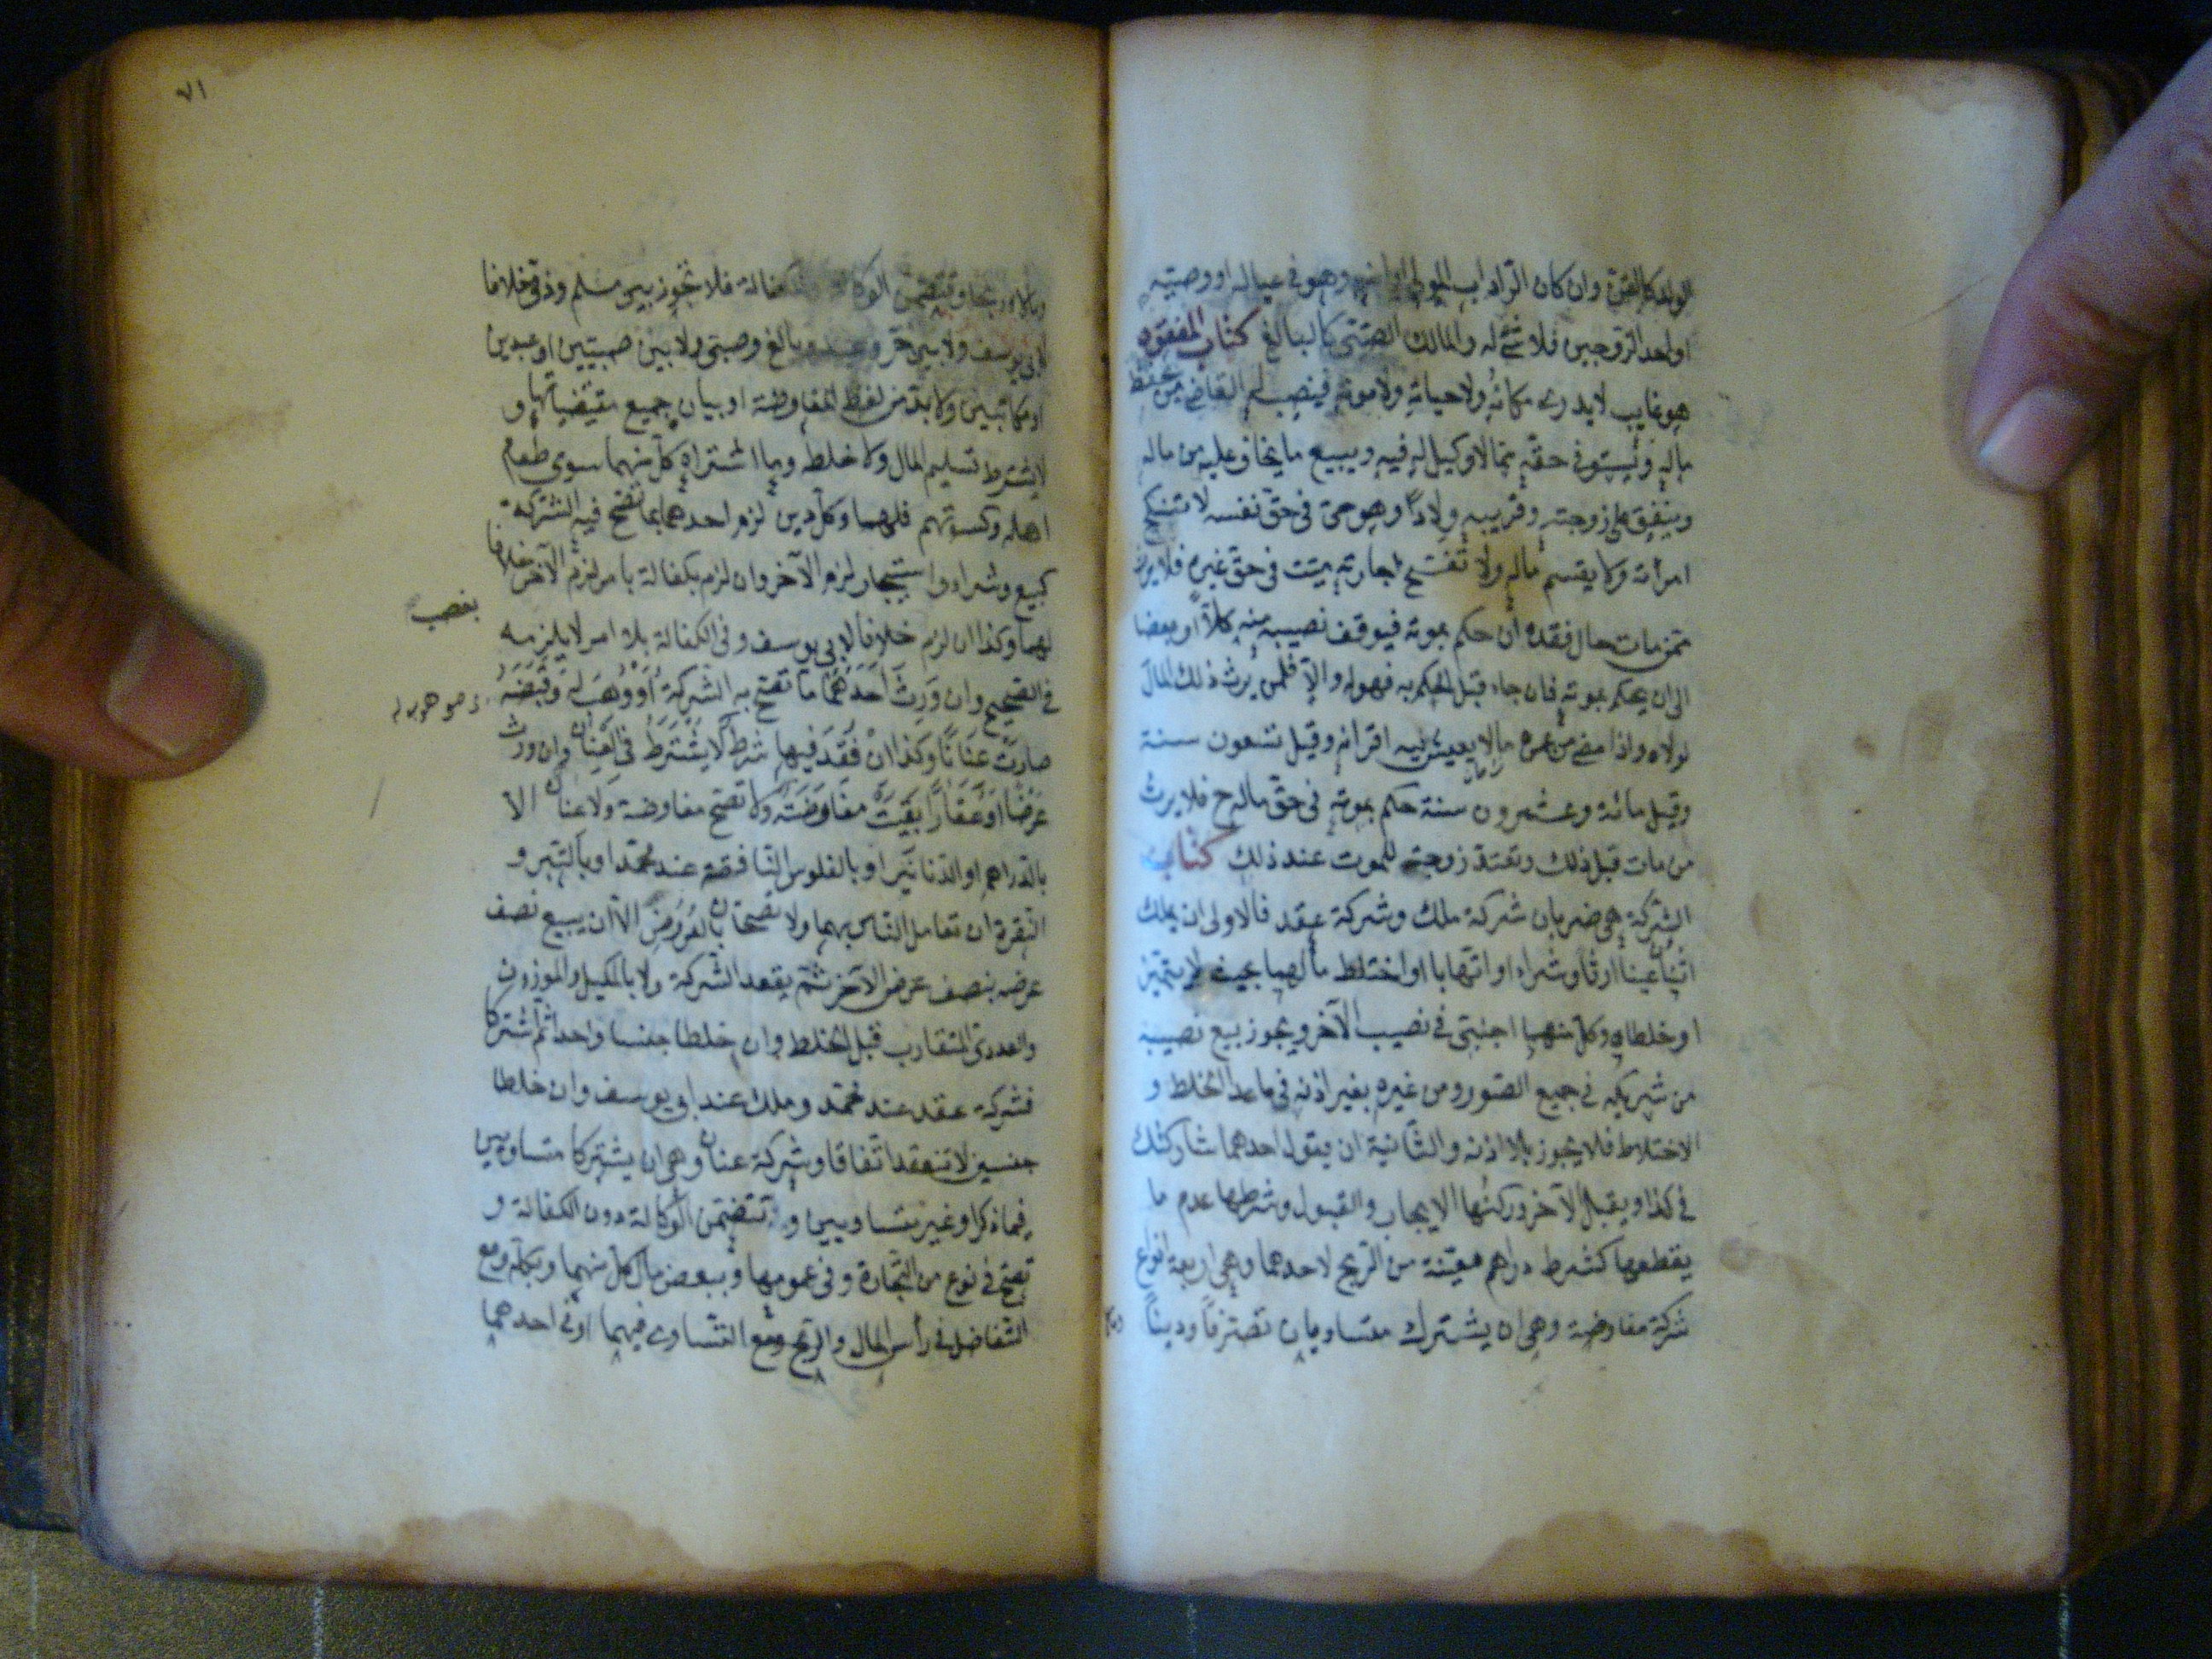 الولد كالقن وان كان الراد اب المولى او ابنه وهو في عياله او وصيه
او احد الزوجين فلا شئ له والمالك الصبي كالبالغ كتاب المفقود
هو غايب لا يدرى مكانه ولا حياته ولا موته فينصب له القاضى من يحفظ
ماله ويستوفى حقه مما لا وكيل له فيه ويبيع ما يخاف عليه من ماله
وينفق على زوجته وقريبه ولادًا وهو حى فى حق نفسه لا تنكح
امرأته ولا يقسم ماله ولا تفسخ اجارته ميت فى حق غيره فلا يرث
ممن مات حال فقده ان حكم بموته فيوقف نصيبه منه كلا او بعضا
الى ان يحكم بموته فان جاء قبل الحكم به فهو له والا فلمن يرث ذلك المال
لولاه واذا مضى من عمره ما لا يعيش ليه اقرانه وقيل تسعون سنة
وقيل مائة وعشرون سنة حكم بموته فى حق ماله ح فلا يرث
من مات قبل ذلك وتعتد زوجته للموت عند ذلك كتاب
الشركة هى ضربان شركة ملك وشركة عقد فالاولى ان يملك
اثنان عينا ارثا وشراء او اتهابا او اختلط مالهما بحيث لا يتميز
او خلطاه وكل منهما اجنبى فى نصيب الآخر ويجوز بيع نصيبه
من شريكه فى جميع الصور ومن غيره بغير اذنه فى ما عدا الخلط و
الاختلاط فلا يجوز بلا اذنه والثانية ان يقول احدهما شاركتك
فى كذا ويقبل الآخر وركنها الايجاب والقبول وشرطها عدم ما
يقطعها كشرط دراهم معينة من الربح لاحدهما وهى اربعة انواع
شركة مفاوضة وهى ان يشترك متساويان تصرفا ودينا
٧١
ومالا وربحا وتتضمن الوكالة والكفالة فلا تجوز بين مسلم وذمى خلافا
لابى يوسف ولا بين حر وعبد وبالغ وصبى ولا بين صبيين او عبدين
او مكاتبين ولا بد من لفظ المفاوضة او بيان جميع مقتضياتها و
لا يشترط تسليم المال ولا خلطه وما اشتراه كل منهما سوى طعام
اهله وكسوتهم فلهما وكل دين لزم احدهما بما تصح فيه الشركة
كبيع وشراء واستيجار لزم الآخر وان لزم بكفالة بامر لزم الآخر خلافا
لهما وكذا ان لزم خلافا لابى يوسف وفى الكفالة بلا امر لا يلزمه
بغصب
فى الصحيح وان ورث احدهما ما تصح به الشركة او وهب له وقبضه
صارت عنانا وكذا ان فقد فيها شرط لا يشترط فى العنان وان ورث
عرضا او عقارا بقيت مفاوضة ولا تصح مفاوضة ولا عنان الا
بالدراهم او الدنانير او بالفلوس النافقة عند محمد او بالتبر و
النقرة ان تعامل الناس بهما ولا تصحان بالعروض الا ان يبيع نصف
عرضه بنصف عرض الآخر ثم يعقد الشركة ولا بالمكيل والموزون
والعددى المتقارب قبل الخلط وان خلطا جنسا واحدا ثم اشتركا
فشركة عقد عند محمد وملك عند ابى يوسف وان خلطا
جنسين لا تنعقد اتفاقا وشركة عنان وهى ان يشتركا متساويين
فيما ذكر او غير متساويين و تتضمن الوكالة دون الكفالة و
تصح فى نوع من التجارة وفى عمومها وببعض مال كل منهما وبكله ومع
التفاضل فى رأس المال والربح ومع التساوى فيهما او فى احدهما